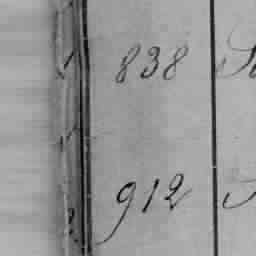 838
912